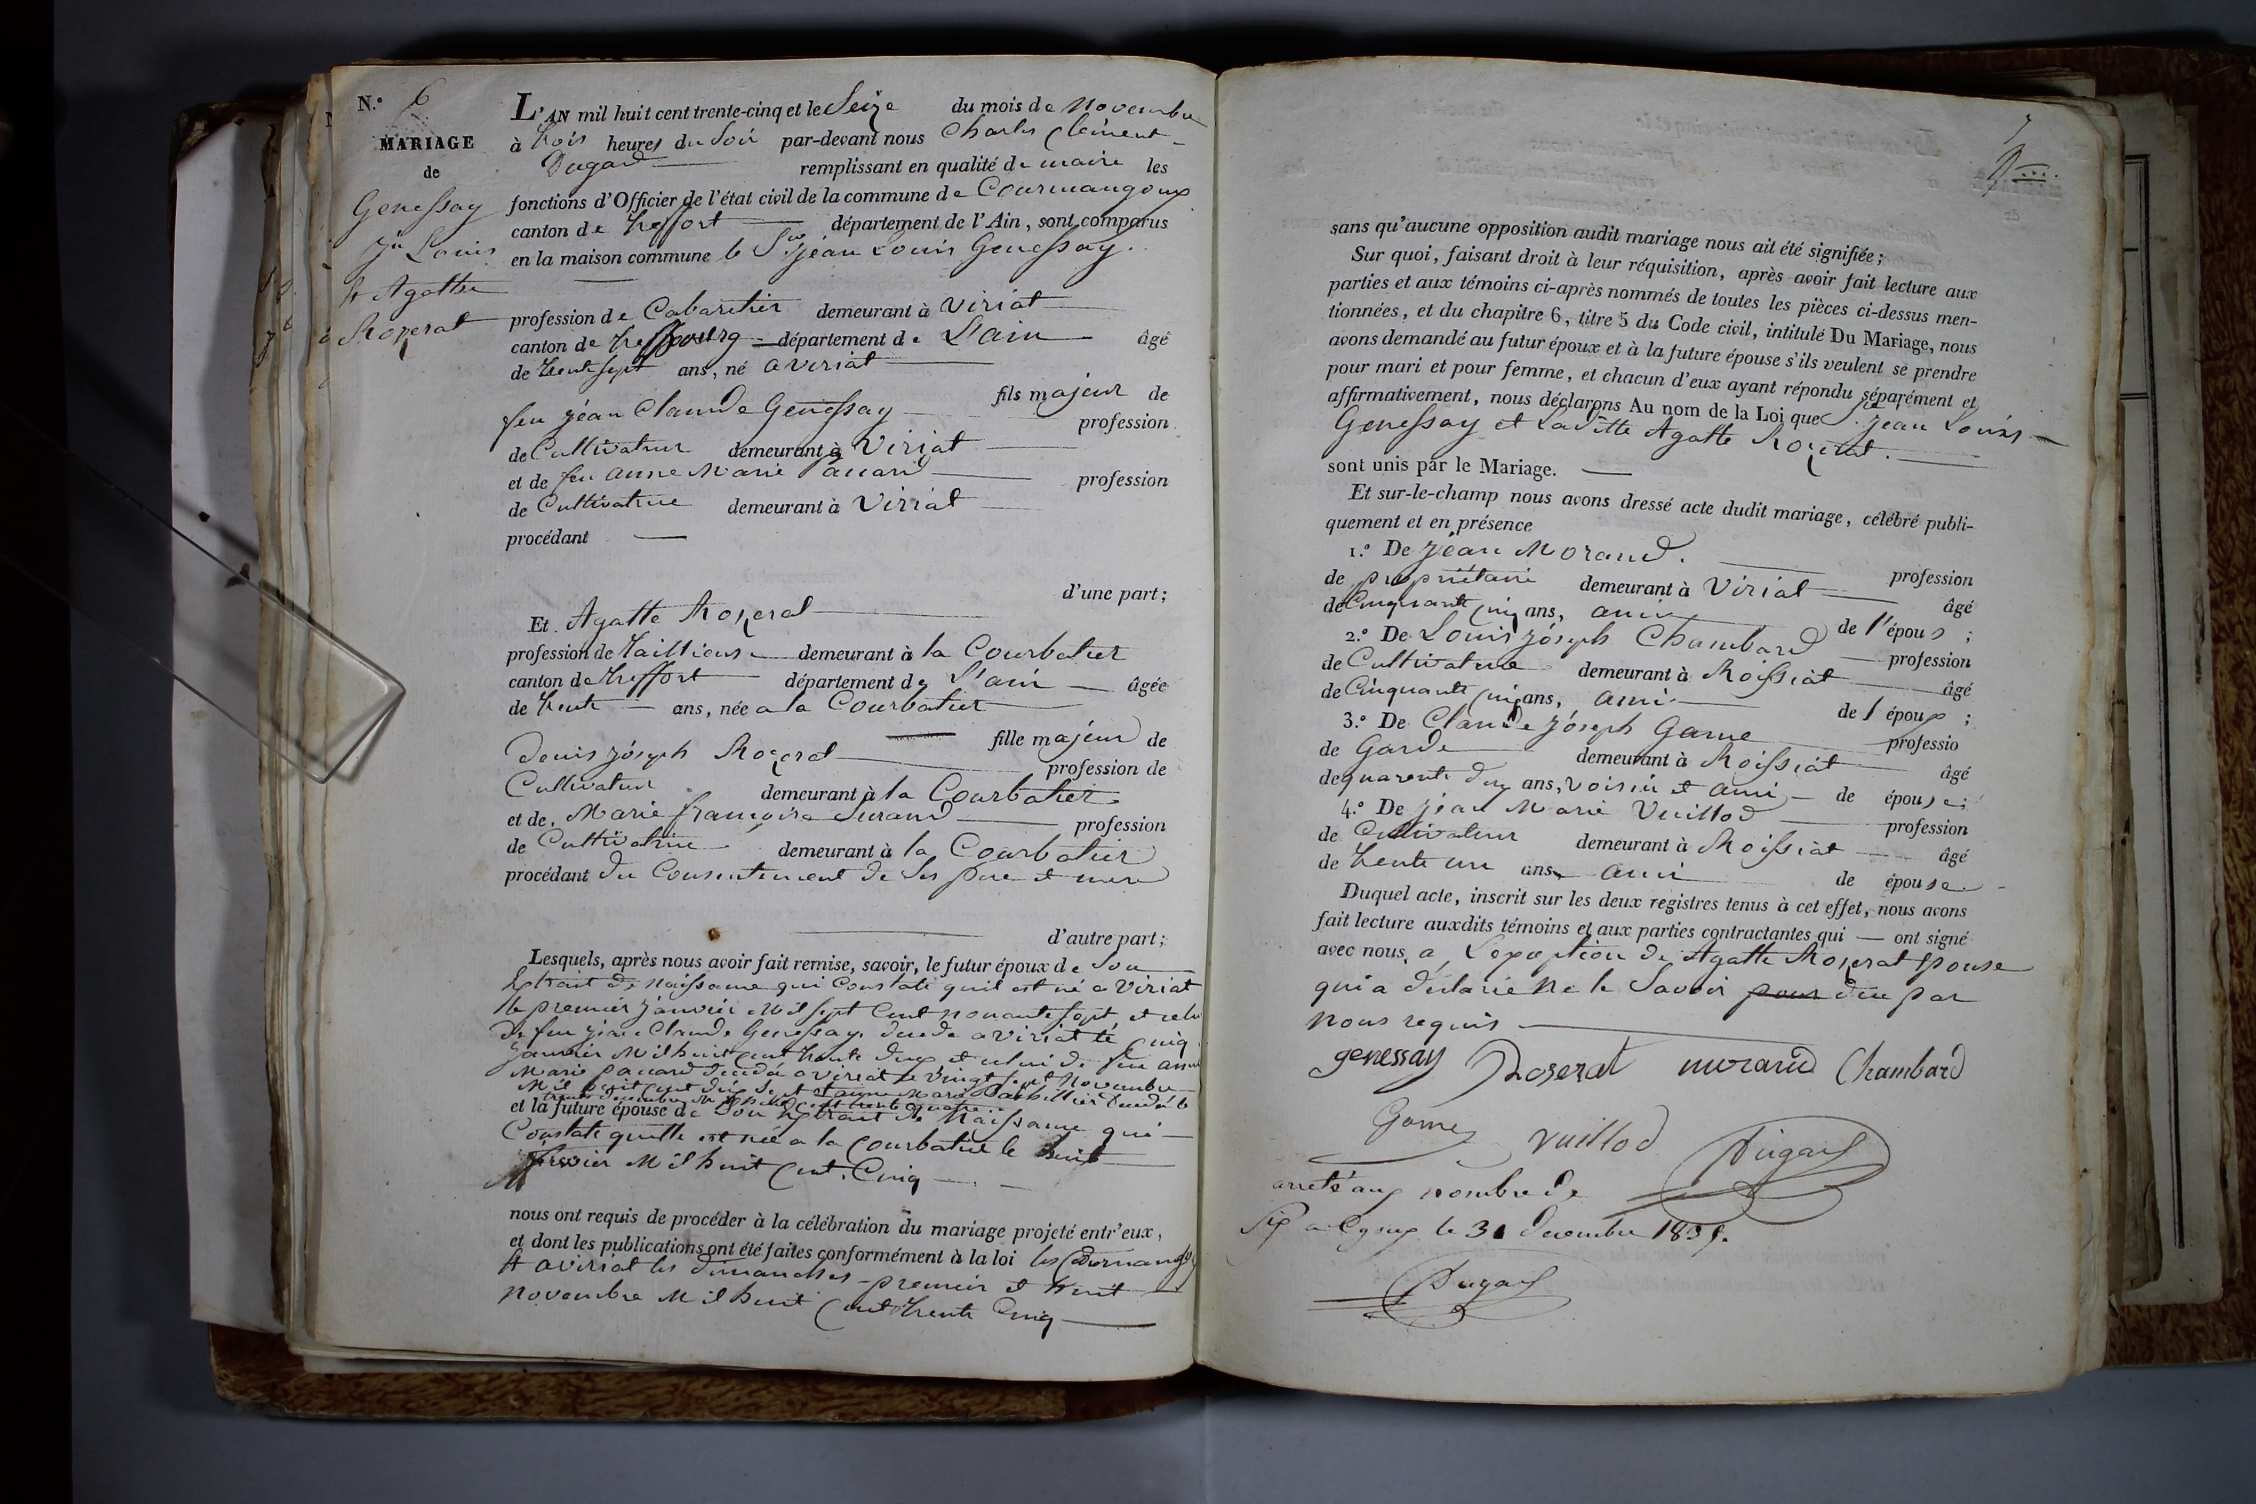 N.° 6
MARIAGE
de
Genessay
Jn Louis
et Agatte
Rozerat
L'AN mil huit cent trente-cinq et le Seize du mois de novembre
à trois heures du Soir par-devant nous Charles Clément
Dugard remplissant en qualité de maire les
fonctions d'Officier de l'état civil de la commune de Courmangoux
canton de treffort département de l'Ain, sont comparus
en la maison commune le Sr jean Louis Genessay.
profession de Cabaretier demeurant à Viriat
canton de bourg département de L'ain âgé
de trente sept ans, né a viriat
fils majeur de
feu jean Claude Genessay profession
de Cultivateur demeurant à Viriat
et de feu anne Marie panard profession
de Cultivatrice demeurant à Viriat
procédant
d'une part;
Et Agatte Rozerat
profession de tailleuse demeurant à la Courbatier
canton de treffort département de L'ain âgée
de trente ans, née a la Courbatier
fille majeur de
Denis joseph Rozerat profession de
Cultivateur demeurant à la Courbatier
et de Marie françoise Surand profession
de Cultivatrice demeurant à la Courbatier
procédant du Consentement de Ses pere et mere
d'autre part;
Lesquels, après nous avoir fait remise, savoir, le futur époux de Son
Extrait de naissance qui Constate quil est né a Viriat
le premier janvier Mil Sept Cent nonante Sept et celui
de feu jean Claude Genessay décédé a viriat le Cinq
janvier Mil huit Cent trente deux et celui de feu anne
Marie panard décédée a viriat le vingt Sept Novembre
Mil huit Cent dix Sept et anne Marie décédée le
trente décembre Mil huit cent trente quatre
et la future épouse de Son Extrait de Naissance qui
Constate quelle est née a la Courbatier le huit
février Mil huit Cent Cinq
nous ont requis de procéder à la célébration du mariage projeté entr'eux,
et dont les publications ont été faites conformément à la loi les Cournangoux
et a viriat les dimanches premier et huit
novembre Mil huit Cent trente Cinq
sans qu'aucune opposition audit mariage nous ait été signifiée;
Sur quoi, faisant droit à leur réquisition, après avoir fait lecture aux
parties et aux témoins ci-après nommés de toutes les pièces ci-dessus men-
tionnées, et du chapitre 6, titre 5 du Code civil, intitulé Du Mariage, nous
avons demandé au futur époux et à la future épouse s'ils veulent se prendre
pour mari et pour femme, et chacun d'eux ayant répondu séparément et
affirmativement, nous déclarons Au nom de la Loi que Sr jean Louis
Genessay et La ditte Agatte Rozerat.
sont unis par le Mariage.
Et sur-le-champ nous avons dressé acte dudit mariage, célébré publi-
quement et en présence
1.° De jean Morand. profession
de propriétaire demeurant à Viriat âgé
de Cinquante Cinq ans, ami de l'épous ;
2.° De Louis joseph Chambard profession
de Cultivateur demeurant à Roissiat âgé
de Cinquante Cinq ans, ami de l époux ;
3.° De Claude joseph Game professio
de Garde demeurant à Roissiat âgé
de quarente deux ans, voisin et ami de épouse;
4.° De jean Marie Vuillod profession
de Cultivateur demeurant à Roissiat âgé
de trente un ans, ami de épouse.
Duquel acte, inscrit sur les deux registres tenus à cet effet, nous avons
fait lecture auxdits témoins et aux parties contractantes qui — ont signé
avec nous, a L'exception de Agatte Rozerat épouse
qui a déclaré Ne le Savoir pour dire par
nous requis
genessay Rozerat morand Chambard
Game vuillod Dugard
arreté aux nombre de
Six a le 31 decembre 1835.
Dugard